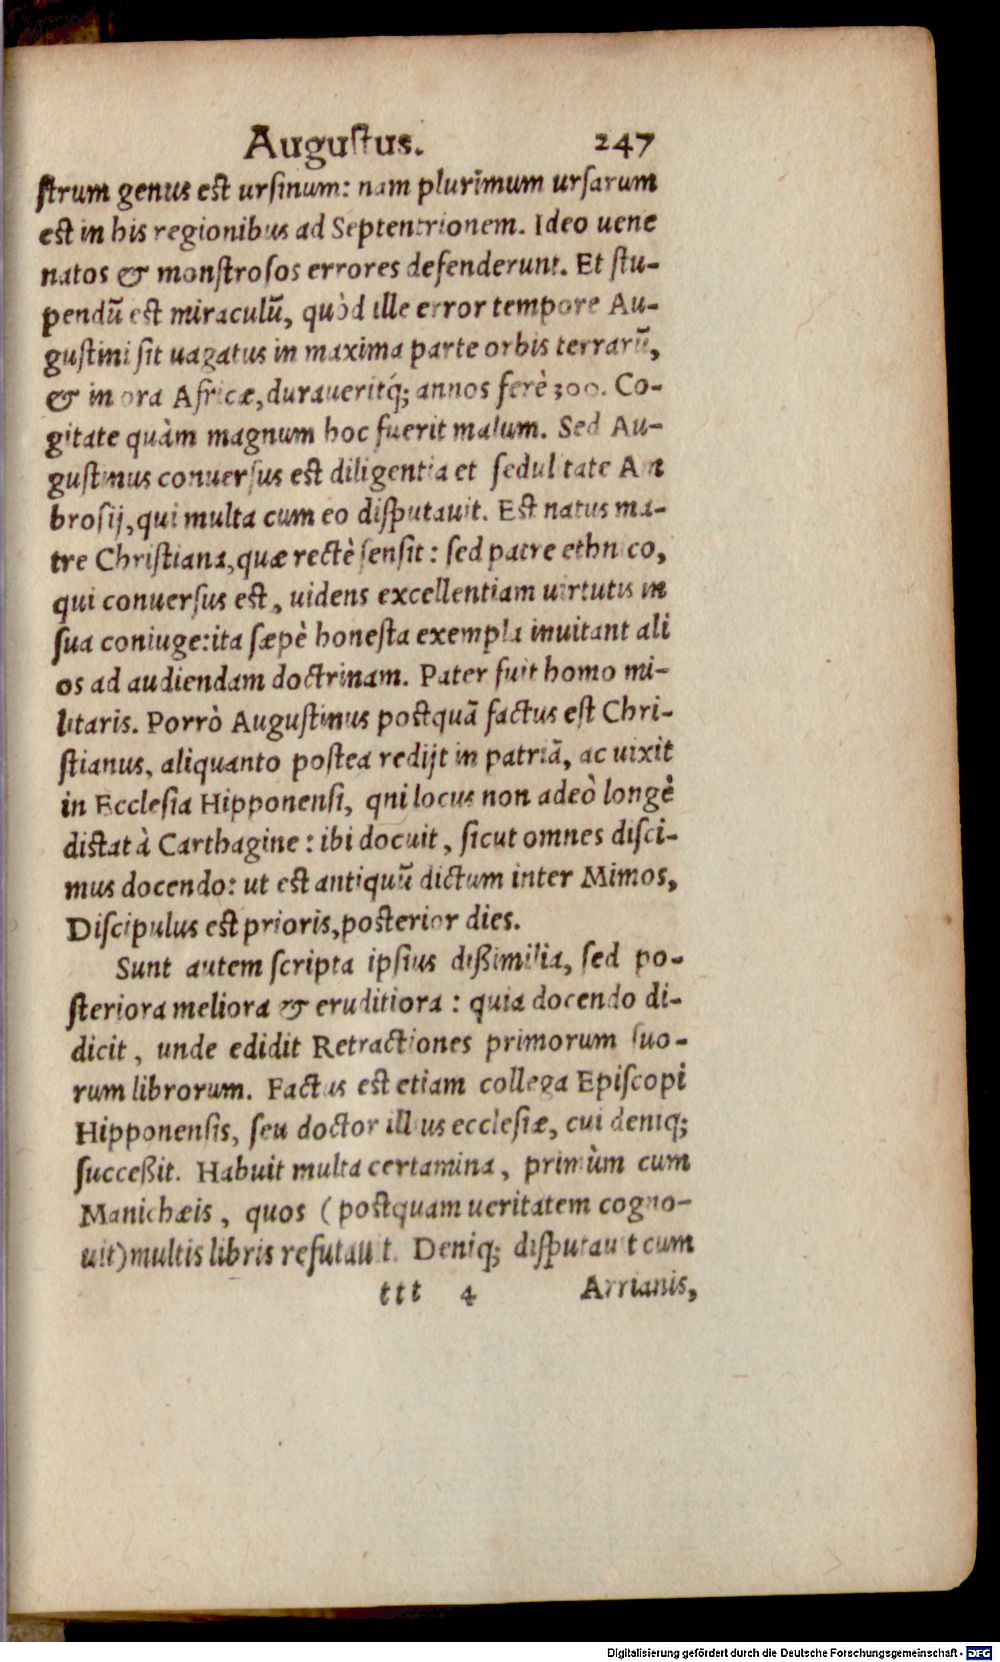 Auguſtus. 247
ſtrum genus est urſinum: nam plurimum urſarum
est in his regionibus ad Septentrionem. Ideo uene
natos & monſtroſos errores defenderunt. Et ſtu-
pendũ est miraculũ, quòd ille error tempore Au-
guſtini ſit uagatus in maxima parte orbis terrarũ,
& in ora Africæ, duraueritq́; annos ferè 300. Co-
gitate quàm magnum hoc fuerit malum. Sed Au-
guſtinus conuerſus est diligentia et ſedulitate Am
broſij, qui multa cum eo diſputauit. Est natus ma-
tre Chriſtiana, quæ rectè ſenſit: ſed patre ethnico,
qui conuerſus est, uidens excellentiam uirtutis in
ſua coniuge: ita ſæpè honeſta exempla inuitant ali
os ad audiendam doctrinam. Pater fuit homo mi-
litaris. Porrò Auguſtinus postquã factus eſt Chri-
ſtianus, aliquanto poſtea redijt in patriã, ac uixit
in Eccleſia Hipponenſi, qni locus non adeò longè
distat à Carthagine: ibi docuit, ſicut omnes diſci-
mus docendo: ut est antiquũ dictum inter Mimos,
Diſcipulus est prioris, posterior dies.
Sunt autem ſcripta ipſius dißimilia, ſed po-
ſteriora meliora & eruditiora: quia docendo di-
dicit, unde edidit Retractiones primorum ſuo-
rum librorum. Factus est etiam collega Epiſcopi
Hipponenſis, ſeu doctor illius eccleſiæ, cui deniq;
ſucceßit. Habuit multa certamina, primùm cum
Manichæis, quos (postquam ueritatem cogno-
uit) multis libris refutauit. Deniq; diſputauit cum
ttt 4 Arrianis,
Digitalisierung gefördert durch die Deutsche Forschungsgemeinschaft - DFG